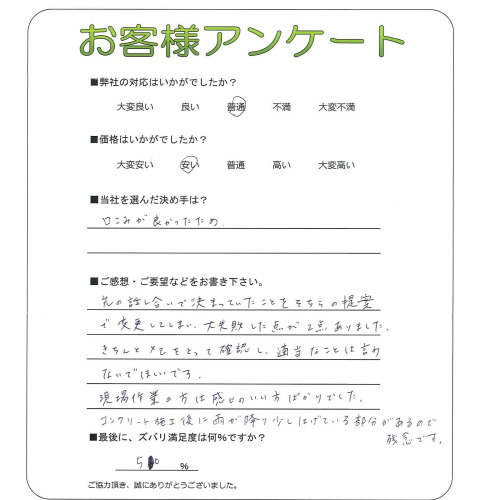 お客様アンケート
■弊社の対応はいかがでしたか？
大変良い 良い 普通 不満 大変不満
■価格はいかがでしたか？
大変安い 安い 普通 高い 大変高い
■当社を選んだ決め手は？
口こみが良かったため。
■ご感想・ご要望などをお書き下さい。
先の話し合いで決まっていたことをそちらの提案
で変更してしまい、大失敗した点が2点ありました。
きちんとメモをとって確認し、適当なことは言わ
ないでほしいです。
現場作業の方は感じのいい方ばかりでした。
コンクリート施工後に雨が降り少しはげている部分があるので
残念です。
■最後に、ズバリ満足度は何%ですか？
50 %
ご協力頂き、誠にありがとうございました。